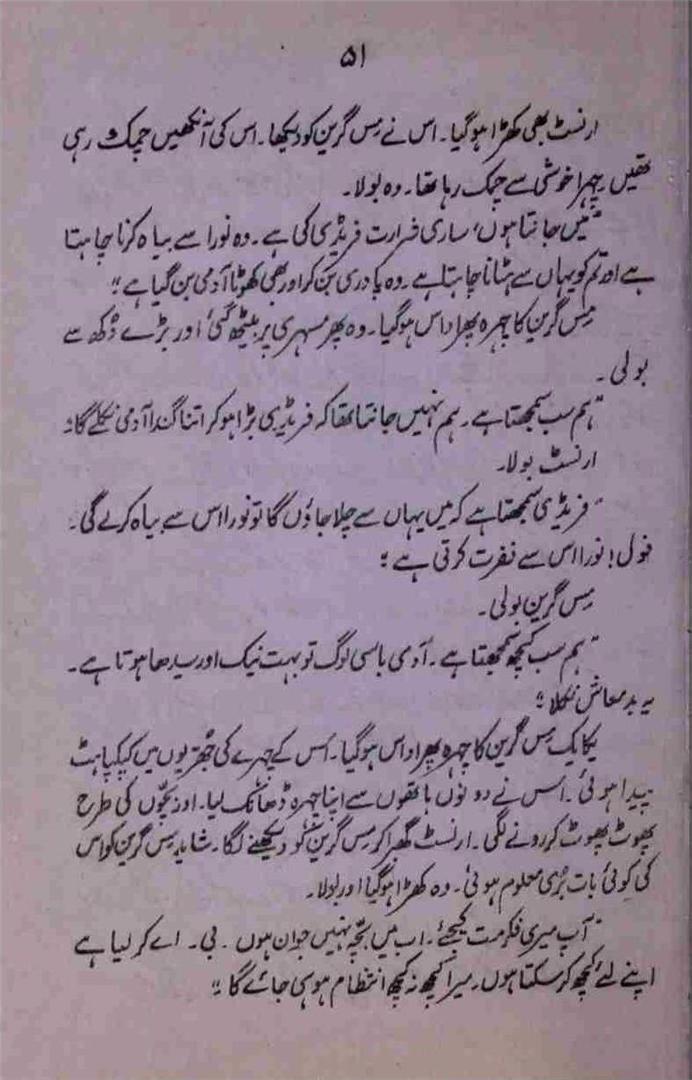 ۵۱
ارنسٹ بھی کھڑا ہوگیا۔ اس نے مس گرین کو دیکھا۔ اس کی آنکھیں چمک رہی
تھیں۔ چہرا خوشی سے چمک رہا تھا۔ وہ بولا۔
"میں جانتا ہوں، ساری شرارت فریڈی کی ہے۔ وہ نورا سے بیاہ کرنا چاہتا
ہے اور تم کو یہاں سے ہٹانا چاہتا ہے۔ وہ پادری بن کر اور بھی کھوٹا آدمی بن گیا ہے"
مس گرین کا چہرہ پھر اداس ہوگیا۔ وہ پھر مسہری پر بیٹھ گئی اور بڑے دُکھ سے
بولی۔
"ہم سب سمجھتا ہے۔ ہم نہیں جانتا تھا کہ فریڈی بڑا ہو کر اتنا گندا آدمی نکلے گا"
ارنسٹ بولا۔
"فریڈی سمجھتا ہے کہ میں یہاں سے چلا جاؤں گا تو نورا اس سے بیاہ کرلے گی۔
فول! نورا اس سے نفرت کرتی ہے"
مس گرین بولی۔
"ہم سب کچھ سمجھتا ہے۔ آدی باسی لوگ تو بہت نیک اور سیدھا ہوتا ہے۔
یہ بدمعاش نکلا"
یکایک مس گرین کا چہرہ پھر اداس ہوگیا۔ اُس کے چہرے کی جھُریوں میں کپکپاہٹ
پیدا ہوئی۔ اُس نے دونوں ہاتھوں سے اپنا چہرہ ڈھانک لیا۔ اور بچّوں کی طرح
پھوٹ پھوٹ کر رونے لگی۔ ارنسٹ گھبرا کر مس گرین کو دیکھنے لگا۔ شاید مس گرین کو اس
کی کوئی بات بُری معلوم ہوئی۔ وہ کھڑا ہوگیا اور بولا۔
"آپ میری فکر مت کیجئے۔ اب میں بچّہ نہیں جوان ہوں۔ بی۔ اے کر لیا ہے
اپنے لئے کچھ کر سکتا ہوں۔ میرا کچھ نہ کچھ انتظام ہو ہی جائے گا۔"